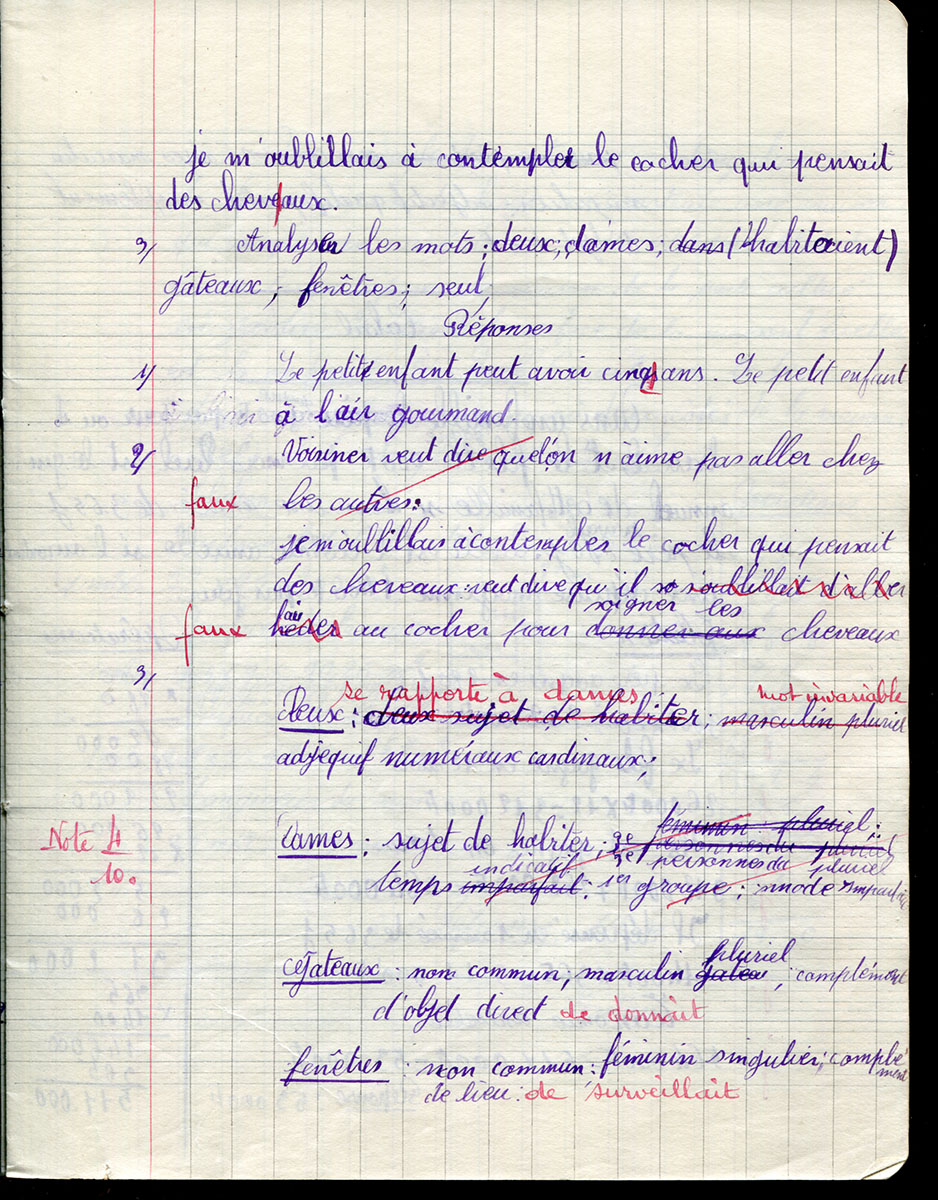 je m'oublillais à contempler le cocher qui pensait
des chevaux.
3/ Analyser les mots : deux ; dames ; dans (l'habitaient)
gâteaux ; fenêtres ; seul,
Réponses
1/ Le petit enfant peut avoir cinq ans. Le petit enfant
à l'air gourmand.
2/ Voisiner veut dire quelqu'on n'aime pas aller chez
faux les autres.
je m'oublillais à contempler le cocher qui pensait
des cheveaux : veut dire qu'il s'oublillait d'aller
soigner les
faux aider au cocher pour donner aux cheveaux
3/
se rapporte à dames mot invariable
Deux : deux sujet de habiter ; masculin pluriel
adjequif numéraux cardinaux ;
féminin : pluriel :
Note 4 Dames ; sujet de habiter ; 3e personnes du pluriel
3e personnes du pluriel
indicatif
10. temps imparfait ; 1er groupe ; mode imparfait
pluriel
Gateaux : nom commun ; masculin ; complément
d'objet direct de donnait
fenêtres : non commun : féminin singulier ; complément
de lieu : de surveillait